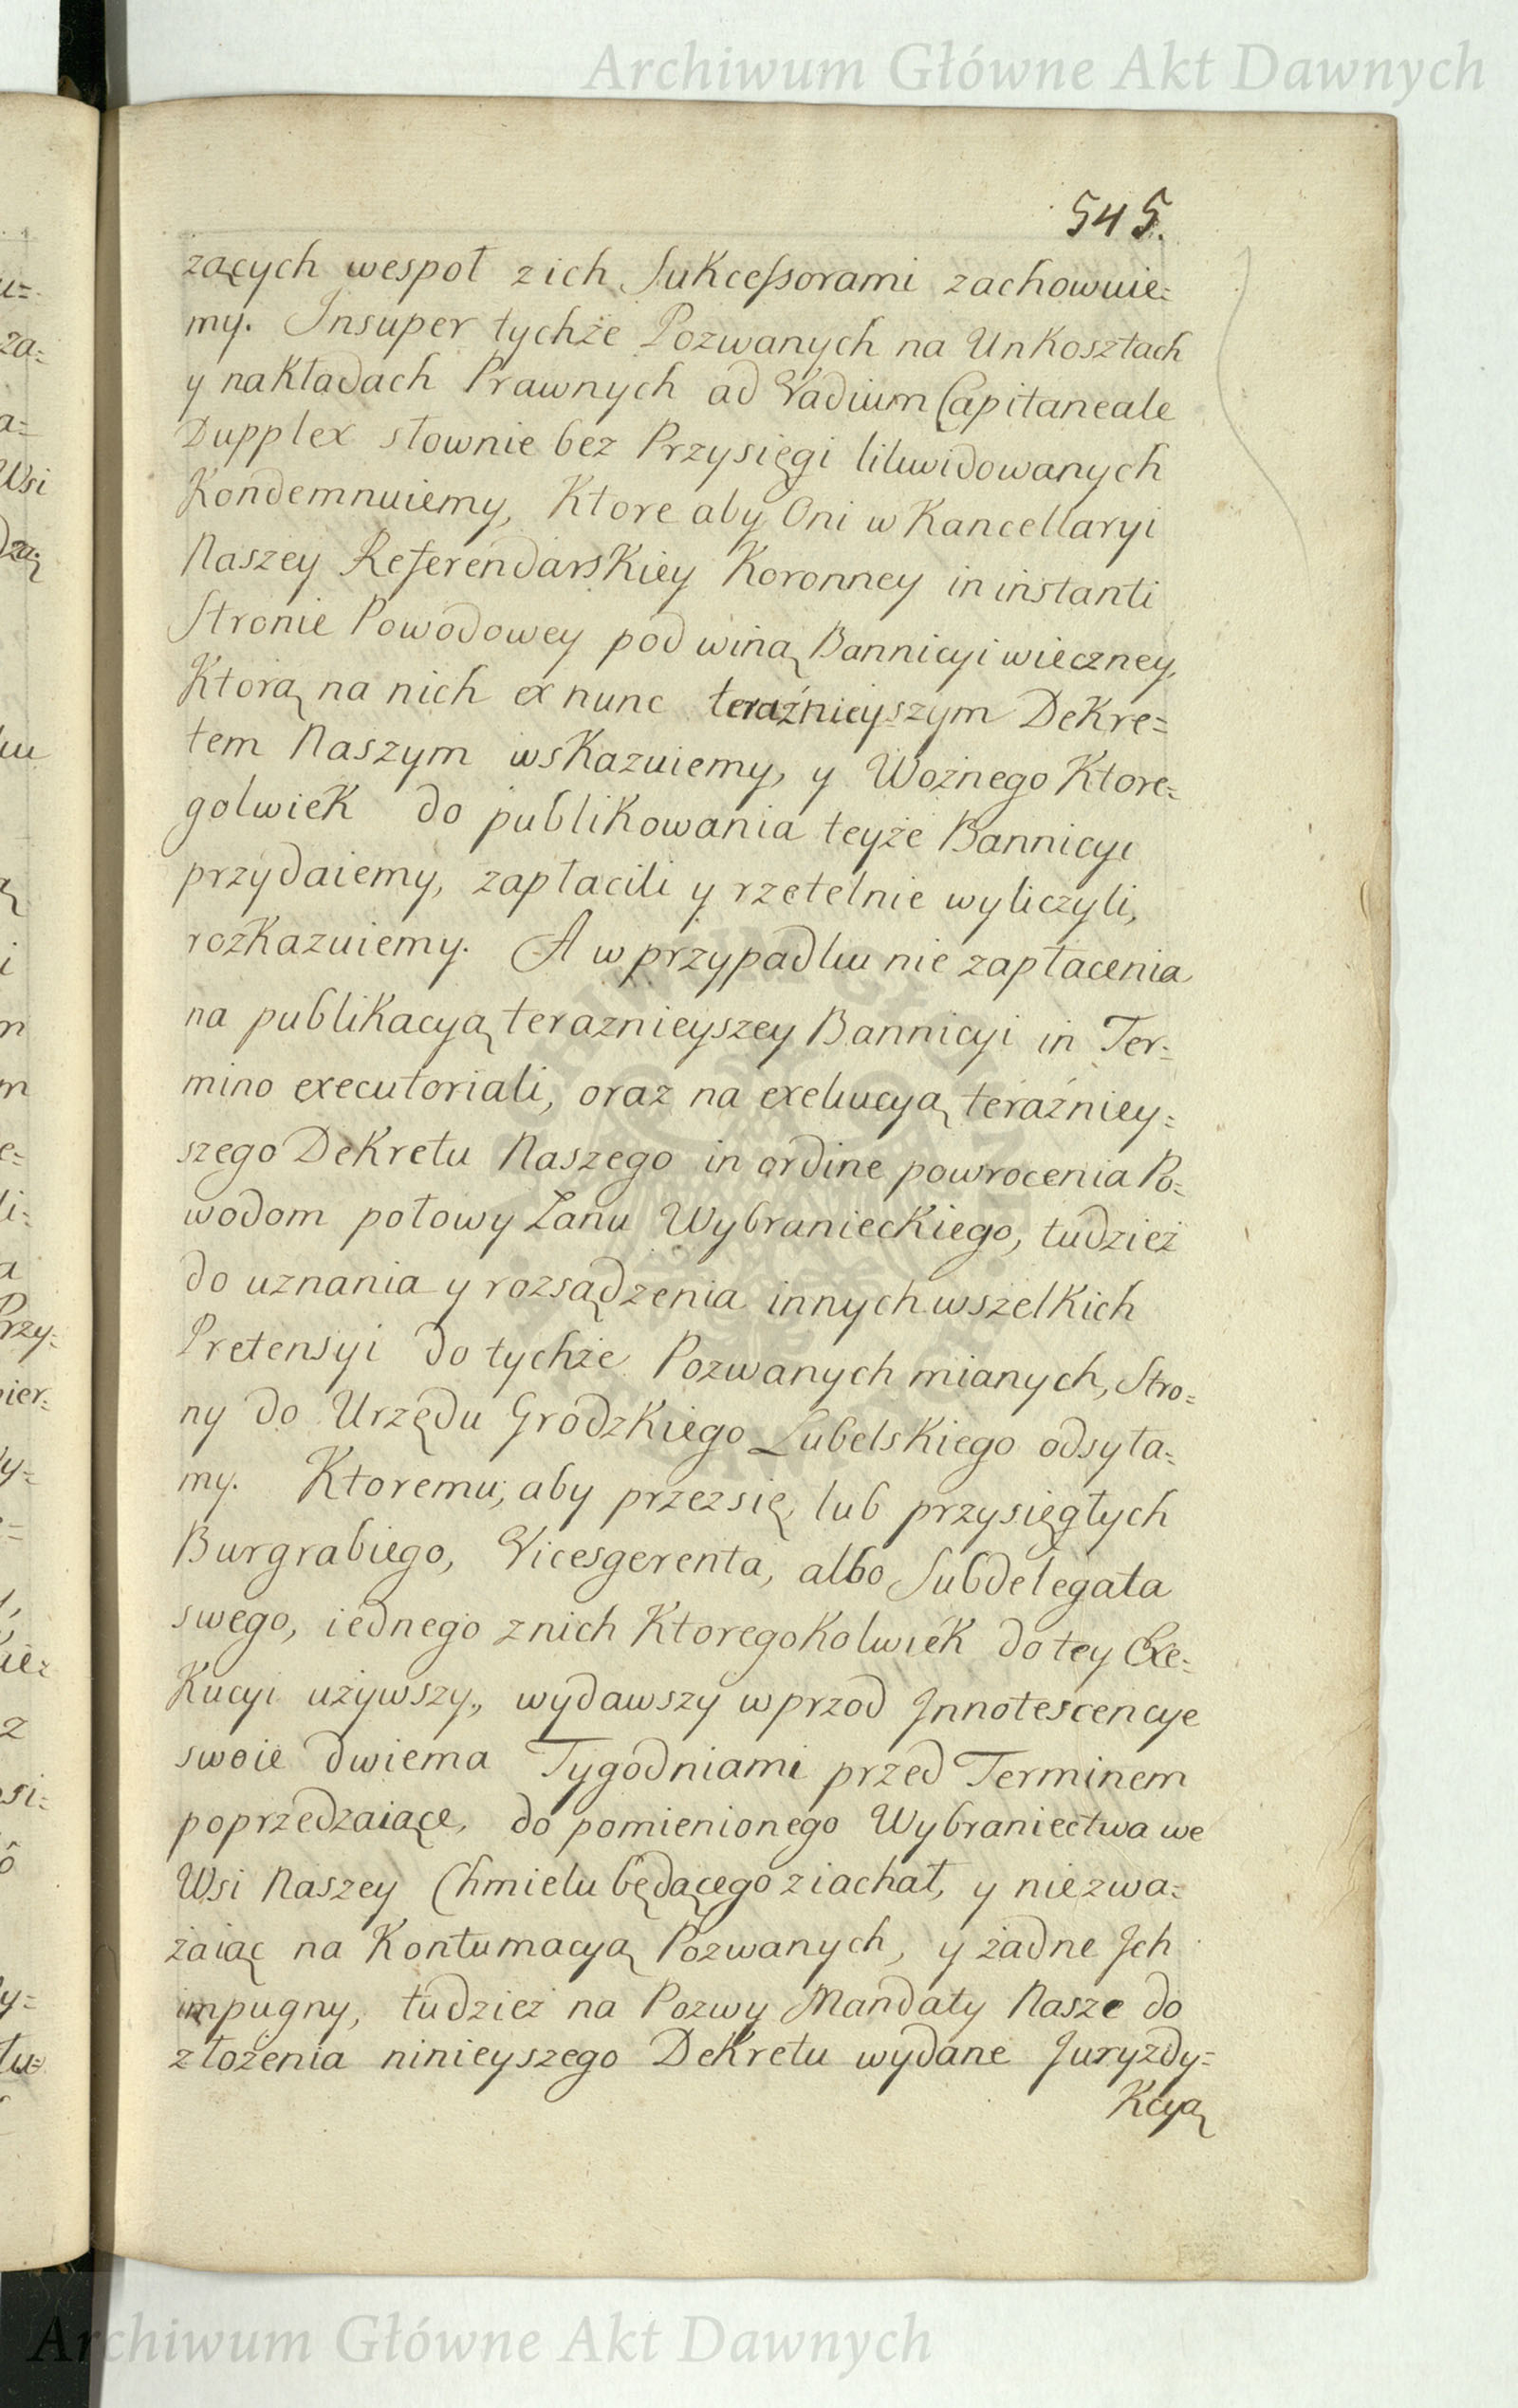 Archiwum Główne Akt Dawnych
545.
zących wespoł z ich Sukcessorami zachowuie=
my. Insuper tychże Pozwanych na Unkosztach
y nakładach Prawnych ad Vadium Capitaneale
Dupplex słownie bez Przysięgi likwidowanych
Kondemnuiemy, Ktore aby Oni w Kancellaryi
Naszey Referendarskiey Koronney in instanti
Stronie Powodowey pod winą Bannicyi wieczney,
Ktorą na nich ex nunc teraźnieyszym Dekre=
tem Naszym wskazuiemy, y Woźnego Ktore=
golwiek do publikowania teyże Bannicyi
przydaiemy, zapłacili y rzetelnie wyliczyli,
rozkazuiemy. A w przypadku nie zapłacenia
na publikacyą teraznieyszey Bannicyi in Ter=
mino executoriali, oraz na exekucyą teráźniey=
szego Dekretu Naszego in ordine powrocenia Po=
wodom połowy Łanu Wybranieckiego, tudzież
do uznania y rozsądzenia innych wszelkich
Pretensyi do tychże Pozwanych mianych, Stro=
ny do Urzędu Grodzkiego Lubelskiego odsyła=
my. Ktoremu, aby przez się, lub przysięgłych
Burgrabiego, Vicesgerenta, albo Subdelegata
swego, iednego z nich Ktoregokolwiek do tey Exe=
Kucyi używszy, wydawszy wprzod Innotescencye
swoie dwiema Tygodniami przed Terminem
poprzedzaiące, do pomienionego Wybraniectwa we
Wsi Naszey Chmielu będącego ziachał, y niezwa=
żaiąc na Kontumacyą Pozwanych, y żadne Ich
impugny, tudzież na Pozwy Mandaty Nasze do
złożenia ninieyszego Dekretu wydane Juryzdy=
Kcyą
Archiwum Główne Akt Dawnych